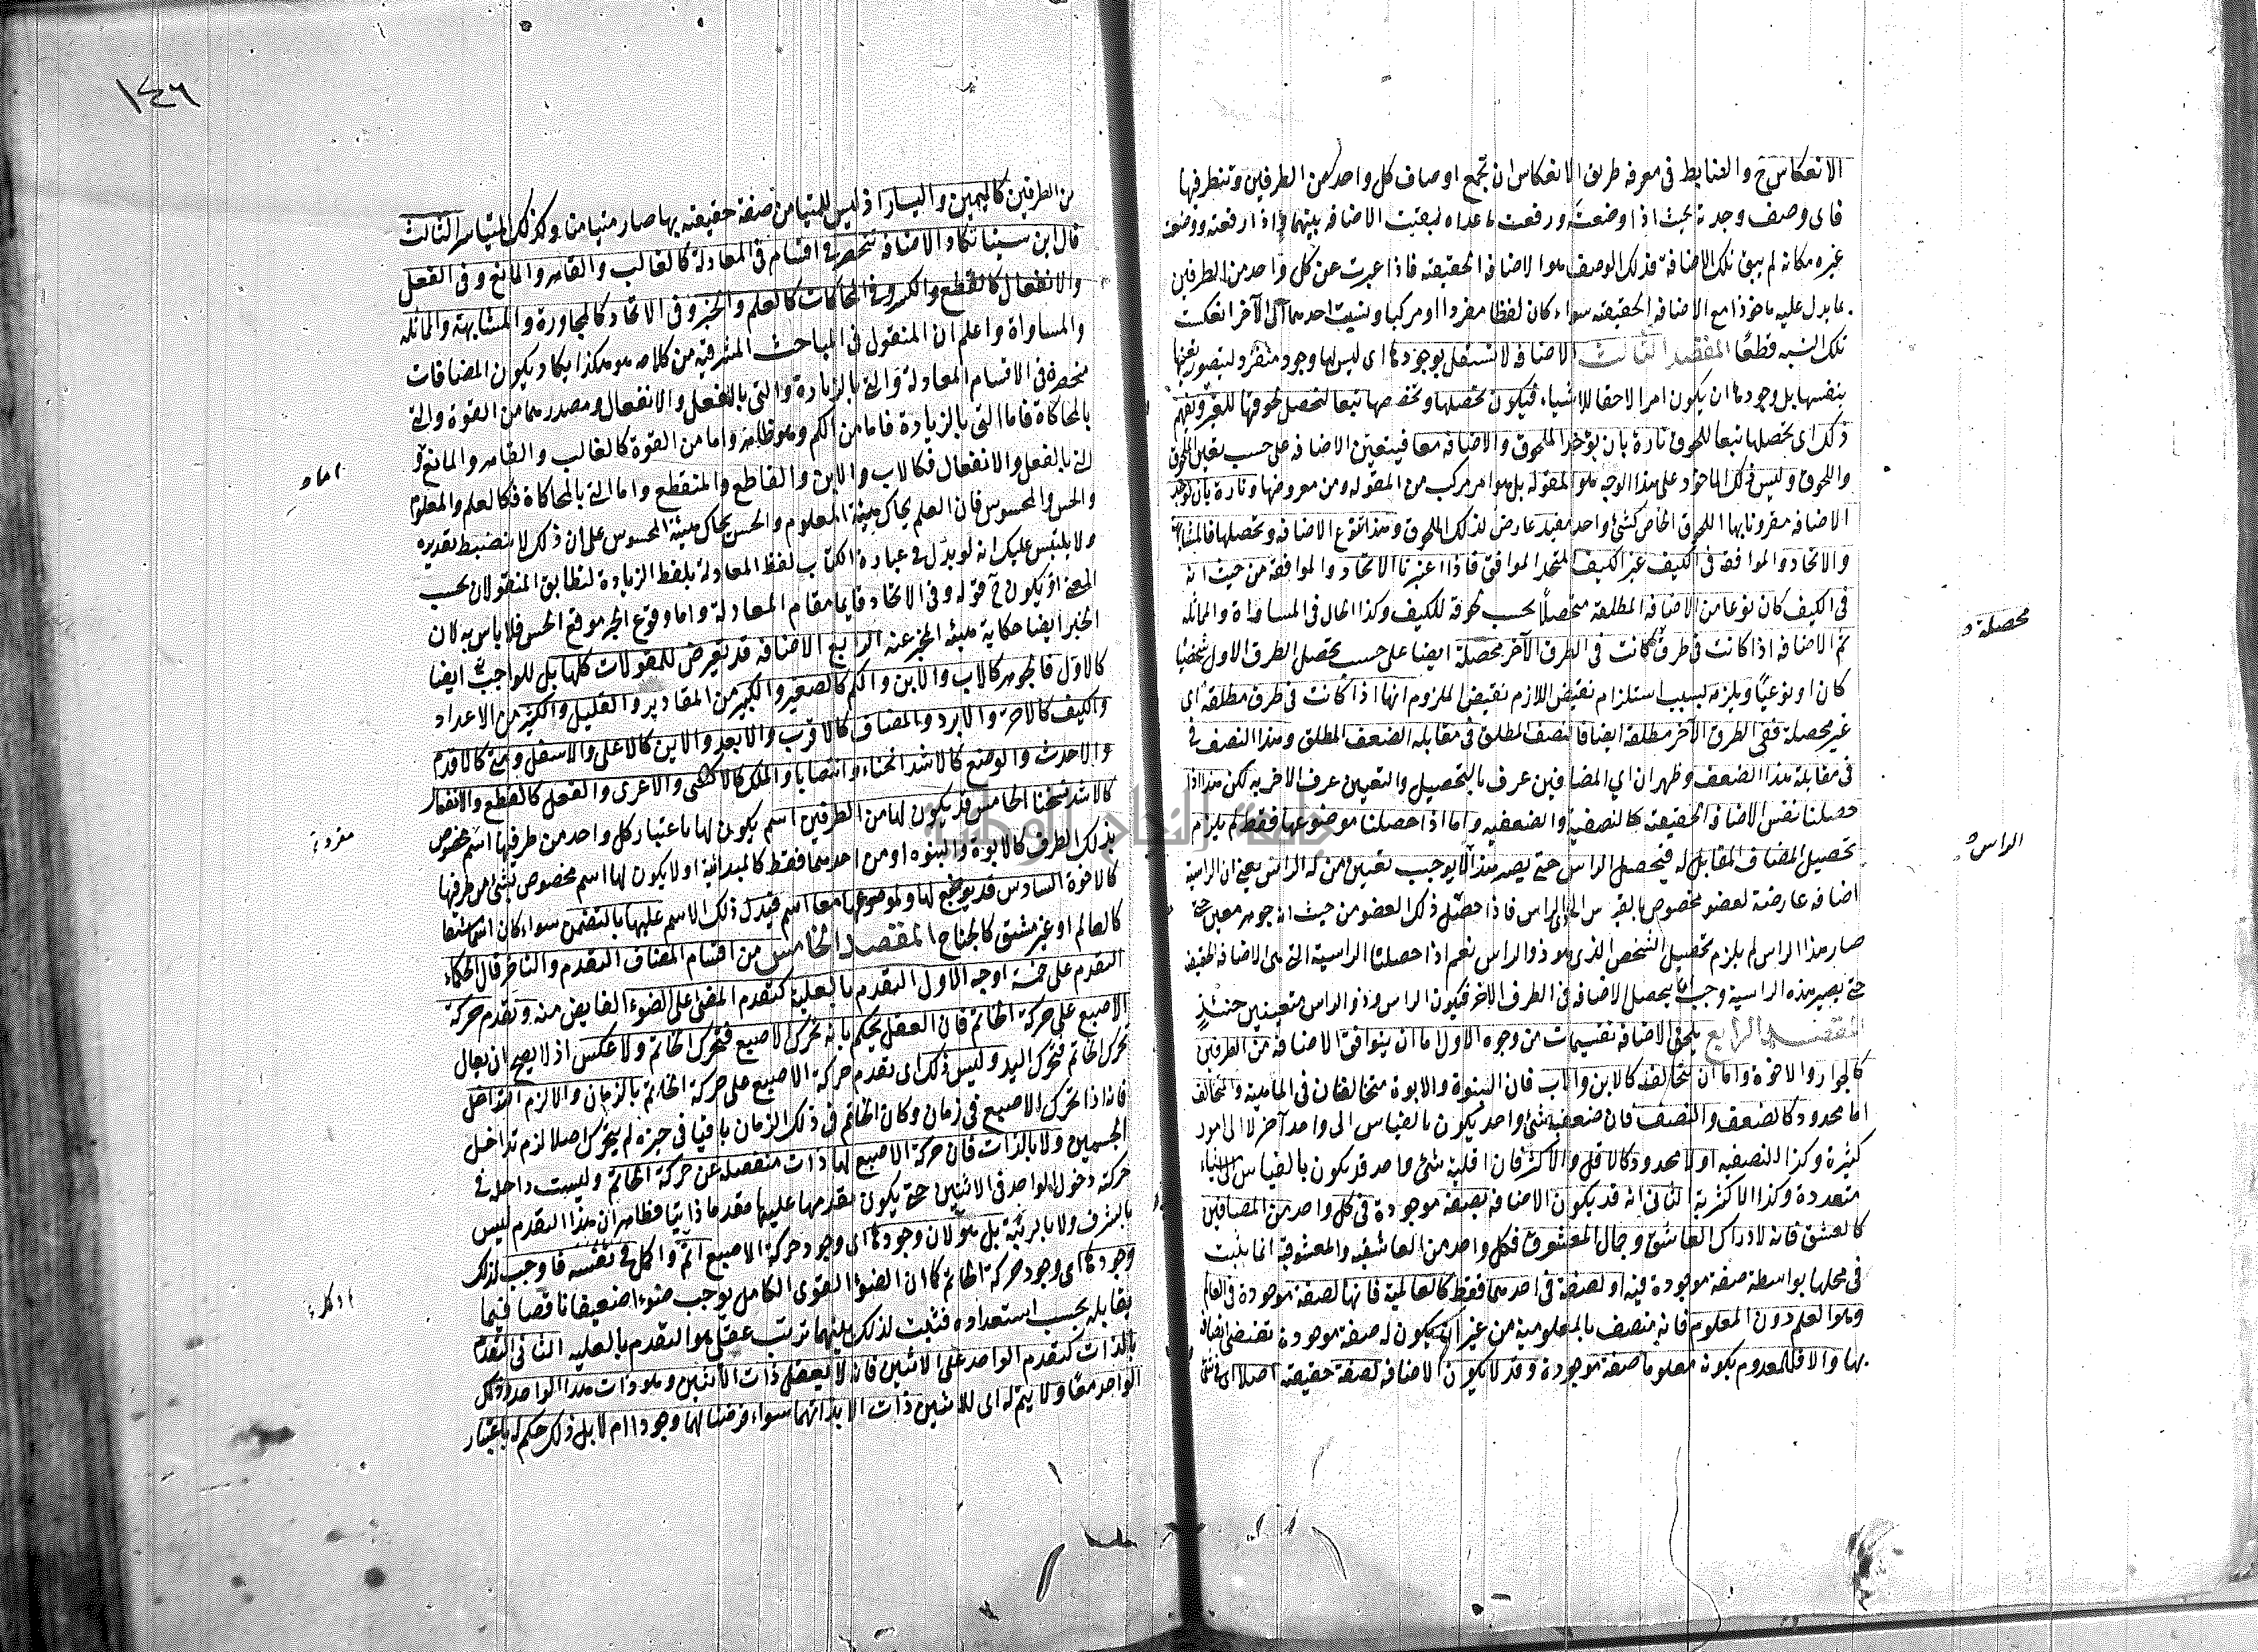 ١٤٦
الانعكاس ح والضابط فى معرفة طريق الانعكاس ان تجمع اوصاف كل واحد من الطرفين وتنظر فيها
فاى وصف وجدته بحيث اذا وضعته ورفعت ما عداه لبقيت الاضافة بينهما واذا رفعته ووضعت
غيره مكانه لم يبق تلك الاضافة فذلك الوصف هو الاضافة الحقيقية فاذا عبرت عن كل واحد من الطرفين
بما يدل عليه ماخوذا مع الاضافة الحقيقية سواء كان لفظا مفردا او مركبا ونسبت احدهما الى الآخر انعكست
تلك النسبة قطعًا المقصد الثالث الاضافة لا تستقل بوجودها اى ليس لها وجود منفرد ليتصور تعينها
بنفسها بل وجودها ان يكون امرا لاحقا للاشياء فيكون تحصلها وتخصصها تبعا لتحصل لحوقها للغير ويفهم
ذلك اى تحصلها تبعا للحوق تارة بان يؤخذ الملحوق والاضافة معا فيتعين الاضافة على حسب تعين الملحوق
واللحوق وليس ذلك الماخوذ على هذا الوجه هو المقولة بل هو امر مركب من المقولة ومن معروضها وتارة بان توخذ
الاضافة مقرونا بها اللحوق الخاص كشئ واحد مقيد عارض لذلك الملحوق وهذا تنوع الاضافة وتحصلها فالمشابهة
والاتحاد والموافقة فى الكيف غير الكيف المتحد الموافق فاذا اعتبرنا الاتحاد والموافقة من حيث انه
فى الكيف كان نوعا من الاضافة المطلقة متحصلًا بحسب لحوقه للكيف وكذا الحال فى المساواة والمماثلة
ثم الاضافة اذا كانت فى طرف كانت فى الطرف الآخر محصلة ايضا على حسب تحصل الطرف الاول شخصيًا
محصلة
كان او نوعيًا ويلزمه بسبب استلزام نقيض اللازم نقيض الملزوم انها اذا كانت فى طرف مطلقة اى
غير محصلة ففى الطرف الآخر مطلقة ايضا فالنصف المطلق فى مقابله الضعف المطلق وهذا النصف فى
فى مقابلة هذا الضعف وظهر ان اي المضافين عرف بالتحصيل والتعيين عرف الاخر به لكن هذا اذا
حصلنا نفس الاضافة الحقيقية كالنصفية والضعفية واما اذا حصلنا موضوعها فقط لم يلزم
تحصيل المضاف المقابل له فتحصل الراس حتى يصير هذا لا يوجب تعيين من له الراس يعنى ان الراسية
الراس
اضافة عارضة لعضو مخصوص بالقياس الى ذى الراس فاذا حصّل ذلك العضو من حيث انه جوهر معين حتى
صار هذا الراس لم يلزم تحصيل الشخص الذى هو ذو الراس نعم اذا حصلنا الراسية التى هى الاضافة الحقيقية
حتى يصير هذه الراسية وجب تحصل الاضافة فى الطرف الاخر فيكون الراس وذو الراس متعينين حينئذٍ
المقصد الرابع يلحق الاضافة تقسيمات من وجوه الاول اما ان يتوافق الاضافة من الطرفين
كالجوار والاخوة واما ان يتخالف كالابن والاب فان البنوة والابوة متخالفان فى الماهية والتخالف
اما محدود كالضعف والنصف فان ضعفية شئ واحد يكون بالقياس الى واحد آخر لا الى امور
كثيرة وكذا النصفية او لا محدود كالاقل والاكثر فان اقلية شئ واحد قد يكون بالقياس الى اشياء
متعددة وكذا الاكثرية الثانى انه قد يكون الاضافة بصفة موجودة فى كل واحد من المضافين
كالعشق فانه لادراك العاشق وجمال المعشوق فكل واحد من العاشقية والمعشوقية انما يثبت
فى محلها بواسطة صفة موجودة فيه او لصفة فى احدهما فقط كالعالمية فانها لصفة موجودة فى العالم
وهو العلم دون المعلوم فانه متصف بالمعلومية من غير ان يكون له صفة موجودة تقتضى اتصافه
بها والا فللمعدوم بكونه معلوما صفة موجودة وقد لا يكون الاضافة لصفة حقيقية اصلا اى فى شئ
من الطرفين كاليمين واليسار اذ ليس للمتيامن صفة حقيقية بها صار متيامنا وكذلك المتياسر الثالث
قال ابن سينا تكاد الاضافة تنحصر فى اقسام فى المعادلة كالغالب والقاهر والمانع وفى الفعل
والانفعال كالقطع والكسر وفى المحاكات كالعلم والخبر وفى الاتحاد كالمجاورة والمشابهة والمماثلة
والمساواة واعلم ان المنقول فى المباحث المشرقية من كلامه هو هكذا يكاد يكون المضافات
منحصرة فى الاقسام المعادلة والتى بالزيادة والتى بالفعل والانفعال ومصدرهما من القوة والتى
بالمحاكاة فاما التى بالزيادة فاما من الكم وهو ظاهر واما من القوة كالغالب والقاهر والمانع و
اما
التى بالفعل والانفعال فكالاب والابن والقاطع والمنقطع واما التى بالمحاكاة فكالعلم والمعلوم
والحس والمحسوس فان العلم يحاكى هيئة المعلوم والحس يحاكى هيئة المحسوس على ان ذلك لا ينضبط تقديره
ولا يلتبس عليك انه لو بدّل فى عبارة الكتاب لفظ المعادلة بلفظ الزيادة لتطابق المنقولان بحسب
المعنى اذ يكون ح قوله وفى الاتحاد قايما مقام المعادلة واما وقوع الخبر موقع الحس فلا باس به لان
الخبر ايضا حكاية هيئة المخبر عنه الرابع الاضافة قد تعرض للمقولات كلها بل للواجب تع ايضا
كالاول فالجوهر كالاب والابن والكم كالصغير والكبير من المقادير والقليل والكثير من الاعداد
والكيف كالاحر والابرد والمضاف كالاقرب والابعد والاين كالاعلى والاسفل ومتى كالاقدم
والاحدث والوضع كالاشد انحناء وانتصابا والملك كالاكسى والاعرى والفعل كالقطع والانفعال
كالاشد تسخنا الخامس قد يكون لها من الطرفين اسم يكون لها باعتبار كل واحد من طرفيها اسم مخصوص
مفرد
بذلك الطرف كالابوة والبنوة او من احدهما فقط كالمبدائية او لا يكون لها اسم مخصوص بشئ من طرفيها
كالاخوة السادس قد يوضع لها ولموضوعها معا اسم فيدل ذلك الاسم عليها بالتضمن سواء كان اسما مشتقا
كالعالم او غير مشتق كالجناح المقصد الخامس من اقسام المضاف التقدم والتاخر قال الحكماء
التقدم على خمسة اوجه الاول التقدم بالعلية كتقدم المضئ على الضوء الفايض منه وتقدم حركة
الاصبع على حركة الخاتم فان العقل يحكم بانه تحرك الاصبع فتحرك الخاتم ولا عكس اذ لا يصح ان يقال
تحرك الخاتم فتحرك اليد وليس ذلك اى تقدم حركة الاصبع على حركة الخاتم بالزمان والا لزم التداخل
فانه اذا تحرك الاصبع فى زمان وكان الخاتم فى ذلك الزمان باقيا فى حيزه لم يتحرك اصلا لزم تداخل
الجسمين ولا بالذات فان حركة الاصبع لها ذات منفصلة عن حركة الخاتم وليست داخلة فى
حركته دخول الواحد فى الاثنين حتى يكون تقدمها عليها تقدما ذاتيا فظاهر ان هذا التقدم ليس
بالشرف ولا بالرتبة بل هو لان وجودها اى وجود حركة الاصبع اتم واكمل فى نفسه فاوجب لذلك
وجودها اى وجود حركة الخاتم كما ان الضوء القوى الكامل يوجب ضوءا ضعيفا ناقصا فيما
يقابله بحسب استعداده فثبت لذلك بينهما ترتب عقلى هو التقدم بالعلية الثانى التقدم
بالذات كتقدم الواحد على الاثنين فانه لا يعقل ذات الاثنين وهو ذات هذا الواحد وذلك
الواحد معًا ولا يتم له اى للاثنين ذات الا بذاتهما سواء فرضنا لهما وجودا ام لا بل ذلك حكم له باعتبار
جامعة النجاح الوطنية